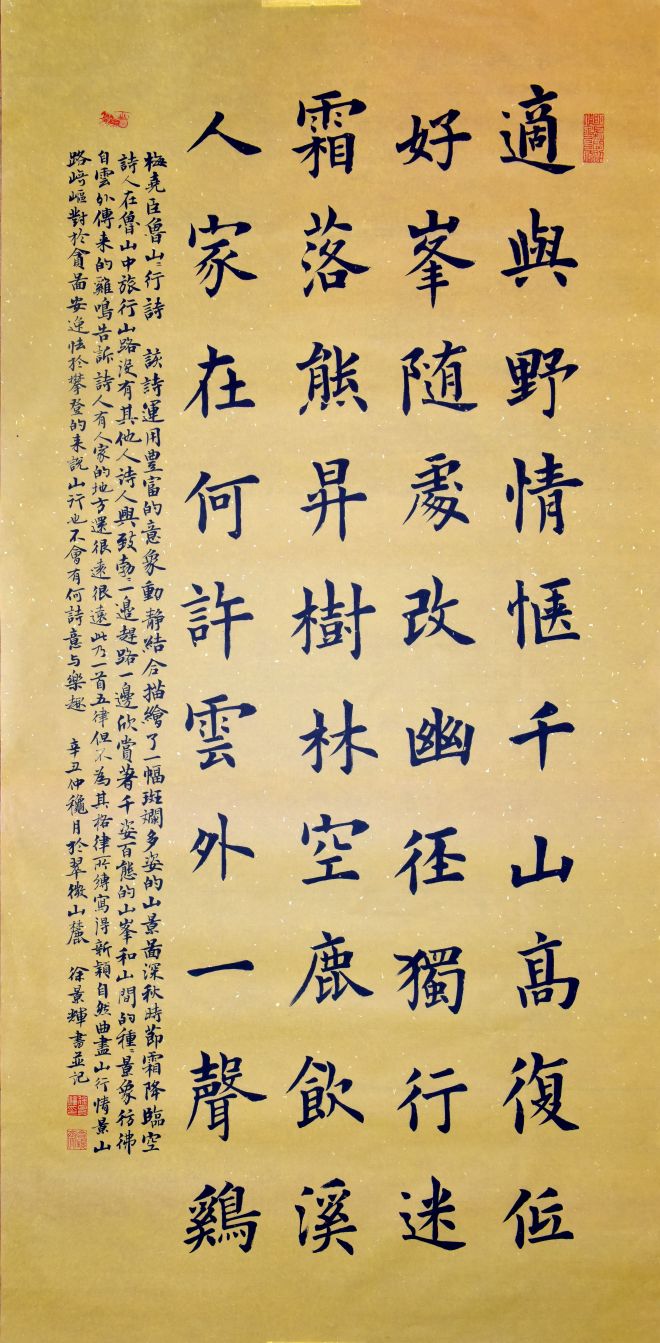 適與野情愜千山髙復低
好峯随處改幽徑獨行迷
霜落熊昇樹林空鹿飲溪
人家在何許雲外一聲鷄
梅堯臣魯山〻行詩 該詩運用豊富的意象動靜結合描繪了一幅斑斕多姿的山景啚深秋時節霜降臨空
詩人在魯山中旅行山路沒有其他人詩人興致勃〻一邊趕路一邊欣賞著千姿百態的山峯和山間的種〻景象彷彿
自雲外傳来的雞鳴告訴詩人有人家的地方還很遠很遠此乃一首五律但不為其格律所縛寫得新穎自然曲盡山行情景山
路崎嶇對於貪啚安逸怯於攀登的来說山行也不會有何詩意与樂趣 辛丑仲穐月於翠微山麓 徐景輝書並記